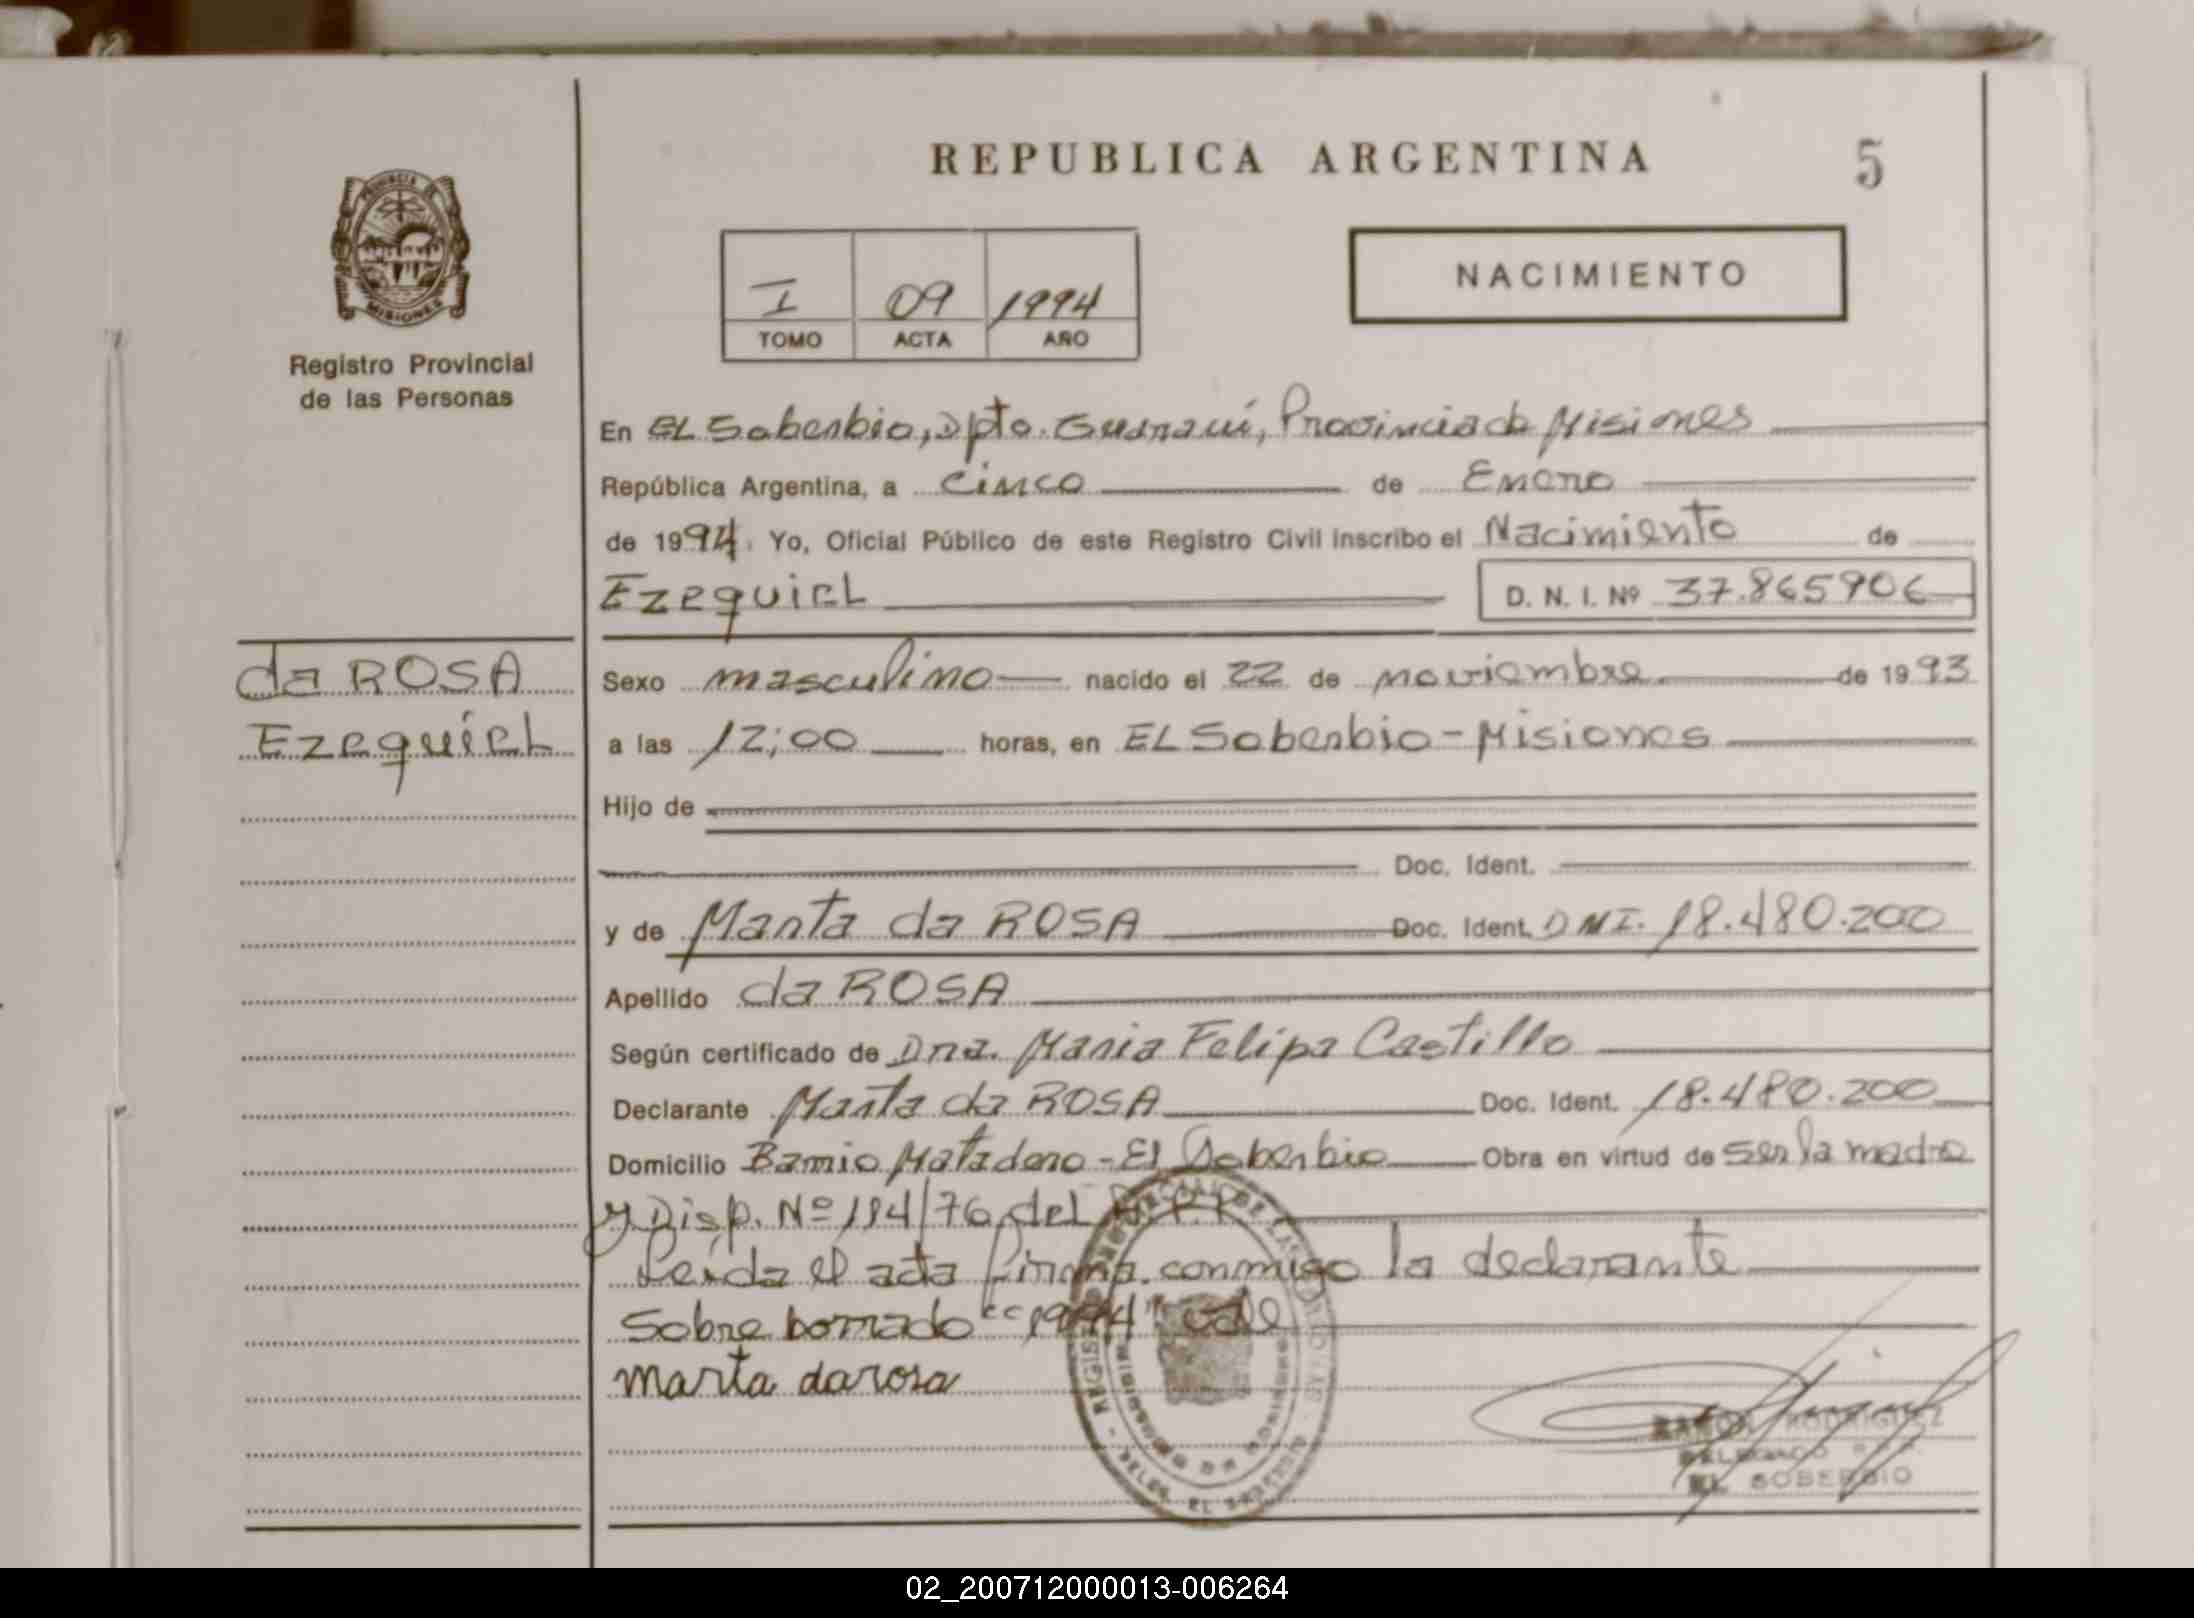 REPUBLICA ARGENTINA
5
PROVINCIA DE
MISIONES
Registro Provincial
de las Personas
I 09 1994
TOMO ACTA AÑO
NACIMIENTO
En EL Soberbio, Dpto. Guaraní, Provincia de Misiones
República Argentina, a cinco de Enero
de 1994. Yo, Oficial Público de este Registro Civil inscribo el Nacimiento de
Ezequiel D. N. I. Nº 37.865906
da ROSA
Ezequiel
Sexo masculino nacido el 22 de noviembre de 1993
a las 12;00 horas, en EL Soberbio - Misiones
Hijo de
Doc. Ident.
y de Marta da ROSA Doc. Ident. DNI. 18.480.200
Apellido da ROSA
Según certificado de Dra. Maria Felipa Castillo
Declarante Marta da ROSA Doc. Ident. 18.480.200
Domicilio Barrio Matadero - El Soberbio Obra en virtud de ser la madre
y Disp. Nº 194/76 del R.P.P.
Leída el acta firma conmigo la declarante
Sobre borrado "1994" vale
marta darosa
RAMON RODRIGUEZ
DELEGADO
EL SOBERBIO
02_200712000013-006264